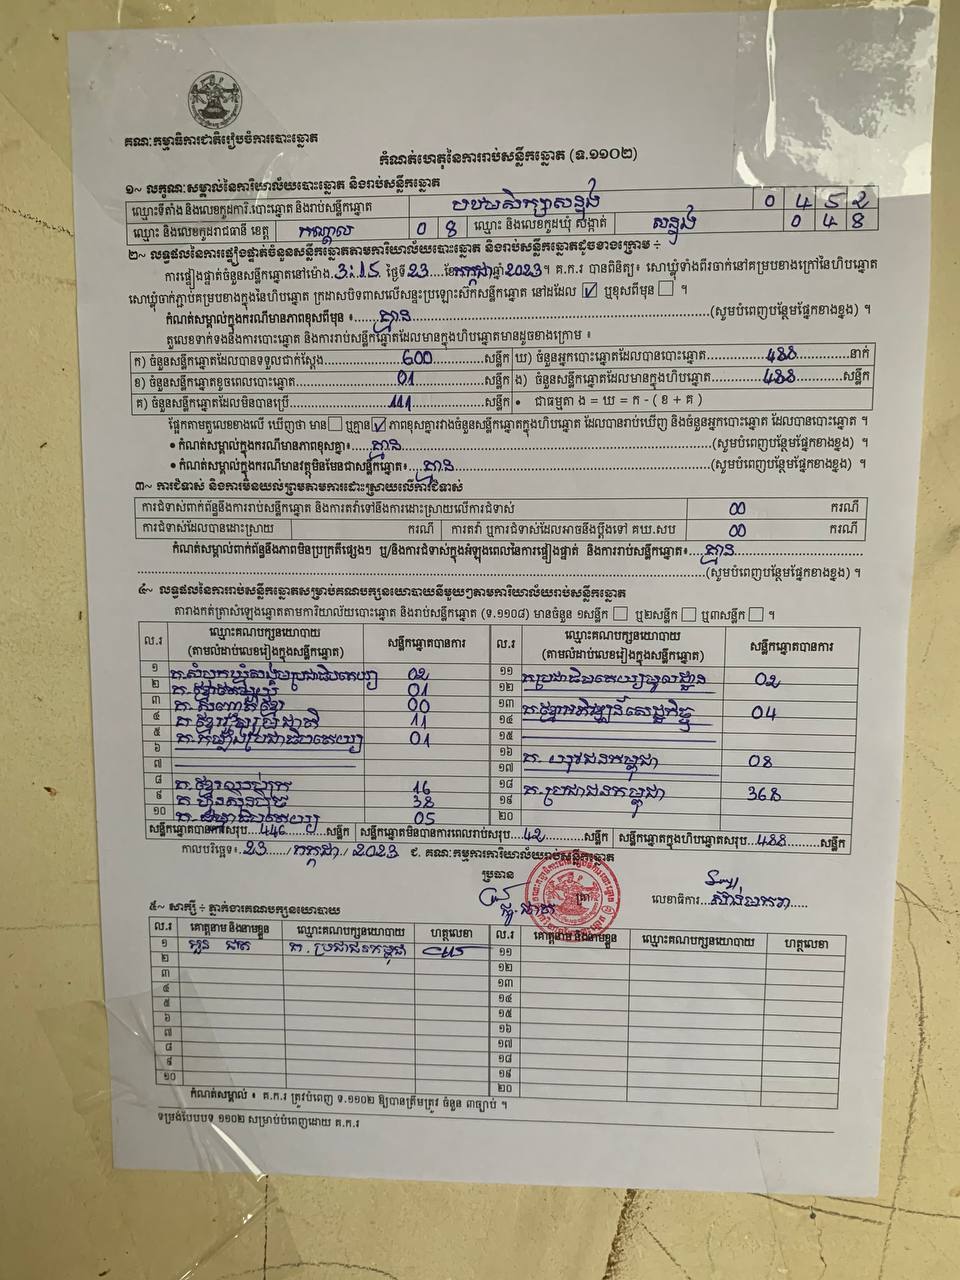 គណៈកម្មាធិការជាតិរៀបចំការបោះឆ្នោត
កំណត់ហេតុនៃការរាប់សន្លឹកឆ្នោត (ទ.១១០២)
១~ លក្ខណៈសម្គាល់នៃការិយាល័យបោះឆ្នោត និងរាប់សន្លឹកឆ្នោត
ឈ្មោះទីតាំង និងលេខកូដការិ.បោះឆ្នោត និងរាប់សន្លឹកឆ្នោត បឋមសិក្សាសន្លុង 0 4 5 2
ឈ្មោះ និងលេខកូដរាជធានី ខេត្ត កណ្តាល 0 8 ឈ្មោះ និងលេខកូដឃុំ សង្កាត់ 0 4 8
២~ លទ្ធផលនៃការផ្ទៀងផ្ទាត់ចំនួនសន្លឹកឆ្នោតតាមការិយាល័យបោះឆ្នោត និងរាប់សន្លឹកឆ្នោតដូចខាងក្រោម ៖
ការផ្ទៀងផ្ទាត់ចំនួនសន្លឹកឆ្នោតនៅម៉ោង 3:15 ថ្ងៃទី 23 ខែ កក្កដា ឆ្នាំ 2023។ គ.ក.រ បានពិនិត្យ៖ សោឃ្លុំទាំងពីរចាក់នៅគម្របខាងក្រៅនៃហិបឆ្នោត
សោឃ្លុំចាក់ភ្ជាប់គម្របខាងក្នុងនៃហិបឆ្នោត ក្រដាសបិទពាសលើសន្ទះប្រឡោះស៊កសន្លឹកឆ្នោត នៅដដែល ☑ ឬខុសពីមុន ☐ ។
កំណត់សម្គាល់ក្នុងករណីមានភាពខុសពីមុន ៖ គ្មាន (សូមបំពេញបន្ថែមផ្នែកខាងខ្នង) ។
តួលេខទាក់ទងនឹងការបោះឆ្នោត និងការរាប់សន្លឹកឆ្នោតដែលមានក្នុងហិបឆ្នោតមានដូចខាងក្រោម ៖
ក) ចំនួនសន្លឹកឆ្នោតដែលបានទទួលជាក់ស្តែង 600 សន្លឹក ឃ) ចំនួនអ្នកបោះឆ្នោតដែលបានបោះឆ្នោត 488 នាក់
ខ) ចំនួនសន្លឹកឆ្នោតខូចពេលបោះឆ្នោត 01 សន្លឹក ង) ចំនួនសន្លឹកឆ្នោតដែលមានក្នុងហិបឆ្នោត 488 សន្លឹក
គ) ចំនួនសន្លឹកឆ្នោតដែលមិនបានប្រើ 111 សន្លឹក • ជាធម្មតា ង = ឃ = ក - ( ខ + គ )
ផ្អែកតាមតួលេខខាងលើ ឃើញថា មាន ☐ ឬគ្មាន ☑ ភាពខុសគ្នារវាងចំនួនសន្លឹកឆ្នោតក្នុងហិបឆ្នោត ដែលបានរាប់ឃើញ និងចំនួនអ្នកបោះឆ្នោត ដែលបានបោះឆ្នោត ។
• កំណត់សម្គាល់ក្នុងករណីមានភាពខុសគ្នា៖ គ្មាន (សូមបំពេញបន្ថែមផ្នែកខាងខ្នង) ។
• កំណត់សម្គាល់ក្នុងករណីមានវត្ថុមិនមែនជាសន្លឹកឆ្នោត៖ គ្មាន (សូមបំពេញបន្ថែមផ្នែកខាងខ្នង) ។
៣~ ការជំទាស់ និងការមិនយល់ព្រមតាមការដោះស្រាយលើការជំទាស់
ការជំទាស់ពាក់ព័ន្ធនឹងការរាប់សន្លឹកឆ្នោត និងការតវ៉ាទៅនឹងការដោះស្រាយលើការជំទាស់ 00 ករណី
ការជំទាស់ដែលបានដោះស្រាយ ករណី ការតវ៉ា ឬការជំទាស់ដែលអាចនឹងប្តឹងទៅ គឃ.សប 00 ករណី
កំណត់សម្គាល់ពាក់ព័ន្ធនឹងភាពមិនប្រក្រតីផ្សេងៗ ឬ/និងការជំទាស់ក្នុងអំឡុងពេលនៃការផ្ទៀងផ្ទាត់ និងការរាប់សន្លឹកឆ្នោត៖ គ្មាន
(សូមបំពេញបន្ថែមផ្នែកខាងខ្នង) ។
៤~ លទ្ធផលនៃការរាប់សន្លឹកឆ្នោតសម្រាប់គណបក្សនយោបាយនីមួយៗតាមការិយាល័យរាប់សន្លឹកឆ្នោត
តារាងកត់ត្រាសំឡេងឆ្នោតតាមការិយាល័យបោះឆ្នោត និងរាប់សន្លឹកឆ្នោត (ទ.១១០៨) មានចំនួន ១សន្លឹក ☐ ឬ២សន្លឹក ☐ ឬ៣សន្លឹក ☐ ។
ល.រ ឈ្មោះគណបក្សនយោបាយ (តាមលំដាប់លេខរៀងក្នុងសន្លឹកឆ្នោត) សន្លឹកឆ្នោតបានការ ល.រ ឈ្មោះគណបក្សនយោបាយ (តាមលំដាប់លេខរៀងក្នុងសន្លឹកឆ្នោត) សន្លឹកឆ្នោតបានការ
១ គ.សំបុកឃ្មុំសង្គមប្រជាធិបតេយ្យ 02 ១១ គ.ប្រជាធិបតេយ្យមូលដ្ឋាន 02
២ 01 ១២
៣ 00 ១៣ គ.ខ្មែរអភិវឌ្ឍន៍សេដ្ឋកិច្ច 04
៤ គ.ខ្មែររួបរួមជាតិ 11 ១៤
៥ គ.កម្លាំងប្រជាធិបតេយ្យ 01 ១៥
៦ ១៦ គ.យុវជនកម្ពុជា 08
៧ ១៧
៨ គ.ខ្មែរឈប់ក្រ 16 ១៨ គ.ប្រជាជនកម្ពុជា 368
៩ គ.ហ្វ៊ុនស៊ិនប៉ិច 38 ១៩
១០ 05 ២០
សន្លឹកឆ្នោតបានការសរុប 446 សន្លឹក សន្លឹកឆ្នោតមិនបានការពេលរាប់សរុប 42 សន្លឹក សន្លឹកឆ្នោតក្នុងហិបឆ្នោតសរុប 488 សន្លឹក
កាលបរិច្ឆេទ៖ 23 / កក្កដា / 2023 ជ. គណៈកម្មការការិយាល័យរាប់សន្លឹកឆ្នោត
ប្រធាន
លេខាធិការ
៥~ សាក្សី ៖ ភ្នាក់ងារគណបក្សនយោបាយ
ល.រ គោត្តនាម និងនាមខ្លួន ឈ្មោះគណបក្សនយោបាយ ហត្ថលេខា ល.រ គោត្តនាម និងនាមខ្លួន ឈ្មោះគណបក្សនយោបាយ ហត្ថលេខា
១ គ.ប្រជាជនកម្ពុជា ១១
២ ១២
៣ ១៣
៤ ១៤
៥ ១៥
៦ ១៦
៧ ១៧
៨ ១៨
៩ ១៩
១០ ២០
កំណត់សម្គាល់ ៖ គ.ក.រ ត្រូវបំពេញ ទ.១១០២ ឱ្យបានត្រឹមត្រូវ ចំនួន ៣ច្បាប់ ។
ទម្រង់បែបបទ ១១០២ សម្រាប់បំពេញដោយ គ.ក.រ